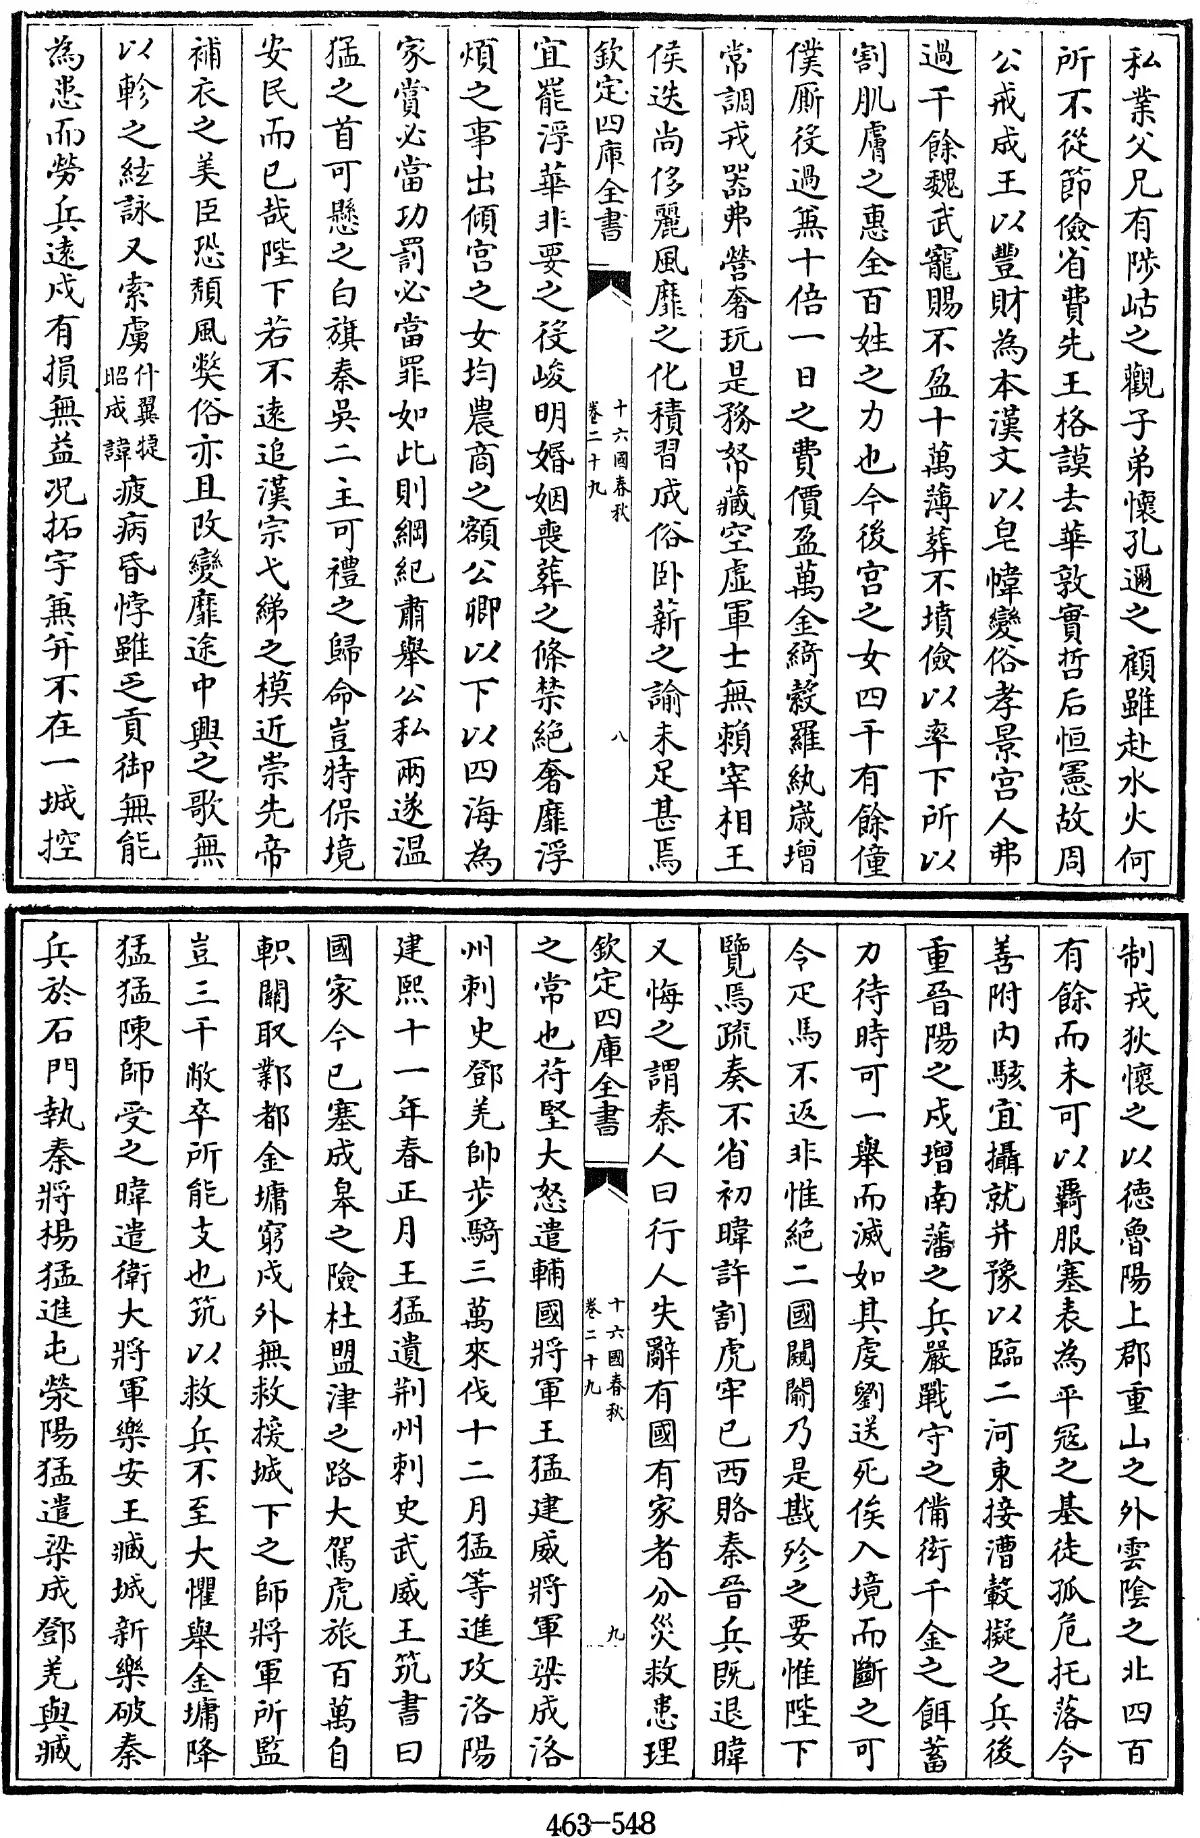 私業父兄有陟岵之觀子弟懷孔邇之顧雖赴水火何
所不從節儉省費先王格謨去華敦實哲后恒憲故周
公戒成王以豐財為本漢文以皂幃變俗孝景宫人弗
過千餘魏武寵賜不盈十萬薄葬不墳儉以率下所以
割肌膚之惠全百姓之力也今後宫之女四千有餘僮
僕厮役過兼十倍一日之費價盈萬金綺縠羅紈嵗增
常調戎器弗營奢玩是務帑藏空虛軍士無賴宰相王
侯迭尚侈麗風靡之化積習成俗卧薪之諭未足甚焉
欽定四庫全書
十六國春秋
卷二十九
八
宜罷浮華非要之役峻明婚姻喪葬之條禁絶奢靡浮
煩之事出傾宫之女均農商之額公卿以下以四海為
家賞必當功罰必當罪如此則綱紀肅舉公私兩遂温
猛之首可懸之白旗秦吳二主可禮之歸命豈特保境
安民而已哉陛下若不遠追漢宗弋綈之模近崇先帝
補衣之美臣恐頽風獘俗亦且改變靡途中興之歌無
以軫之絃詠又索虜什翼犍昭成諱疲病昏悖雖乏貢御無能
為患而勞兵遠戍有損無益况拓宇兼并不在一城控
制戎狄懷之以徳魯陽上郡重山之外雲陰之北四百
有餘而未可以覊服塞表為平冦之基徒孤危托落令
善附内駭宜攝就并豫以臨二河東接漕轂擬之兵後
重晉陽之戍增南藩之兵嚴戰守之備衒千金之餌蓄
力待時可一舉而滅如其虔劉送死俟入境而斷之可
令疋馬不返非惟絶二國闚闟乃是戡殄之要惟陛下
覽焉疏奏不省初暐許割虎牢已西賂秦晉兵既退暐
又悔之謂秦人曰行人失辭有國有家者分災救患理
欽定四庫全書
十六國春秋
卷二十九
九
之常也苻堅大怒遣輔國將軍王猛建威將軍梁成洛
州刺史鄧羌帥步騎三萬來伐十二月猛等進攻洛陽
建熙十一年春正月王猛遺荆州刺史武威王筑書曰
國家今已塞成皋之險杜盟津之路大駕虎旅百萬自
軹關取鄴都金墉窮戍外無救援城下之師將軍所監
豈三千敝卒所能支也筑以救兵不至大懼舉金墉降
猛猛陳師受之暐遣衛大將軍樂安王臧城新樂破秦
兵於石門執秦將楊猛進屯滎陽猛遣梁成鄧羌與臧
463-548